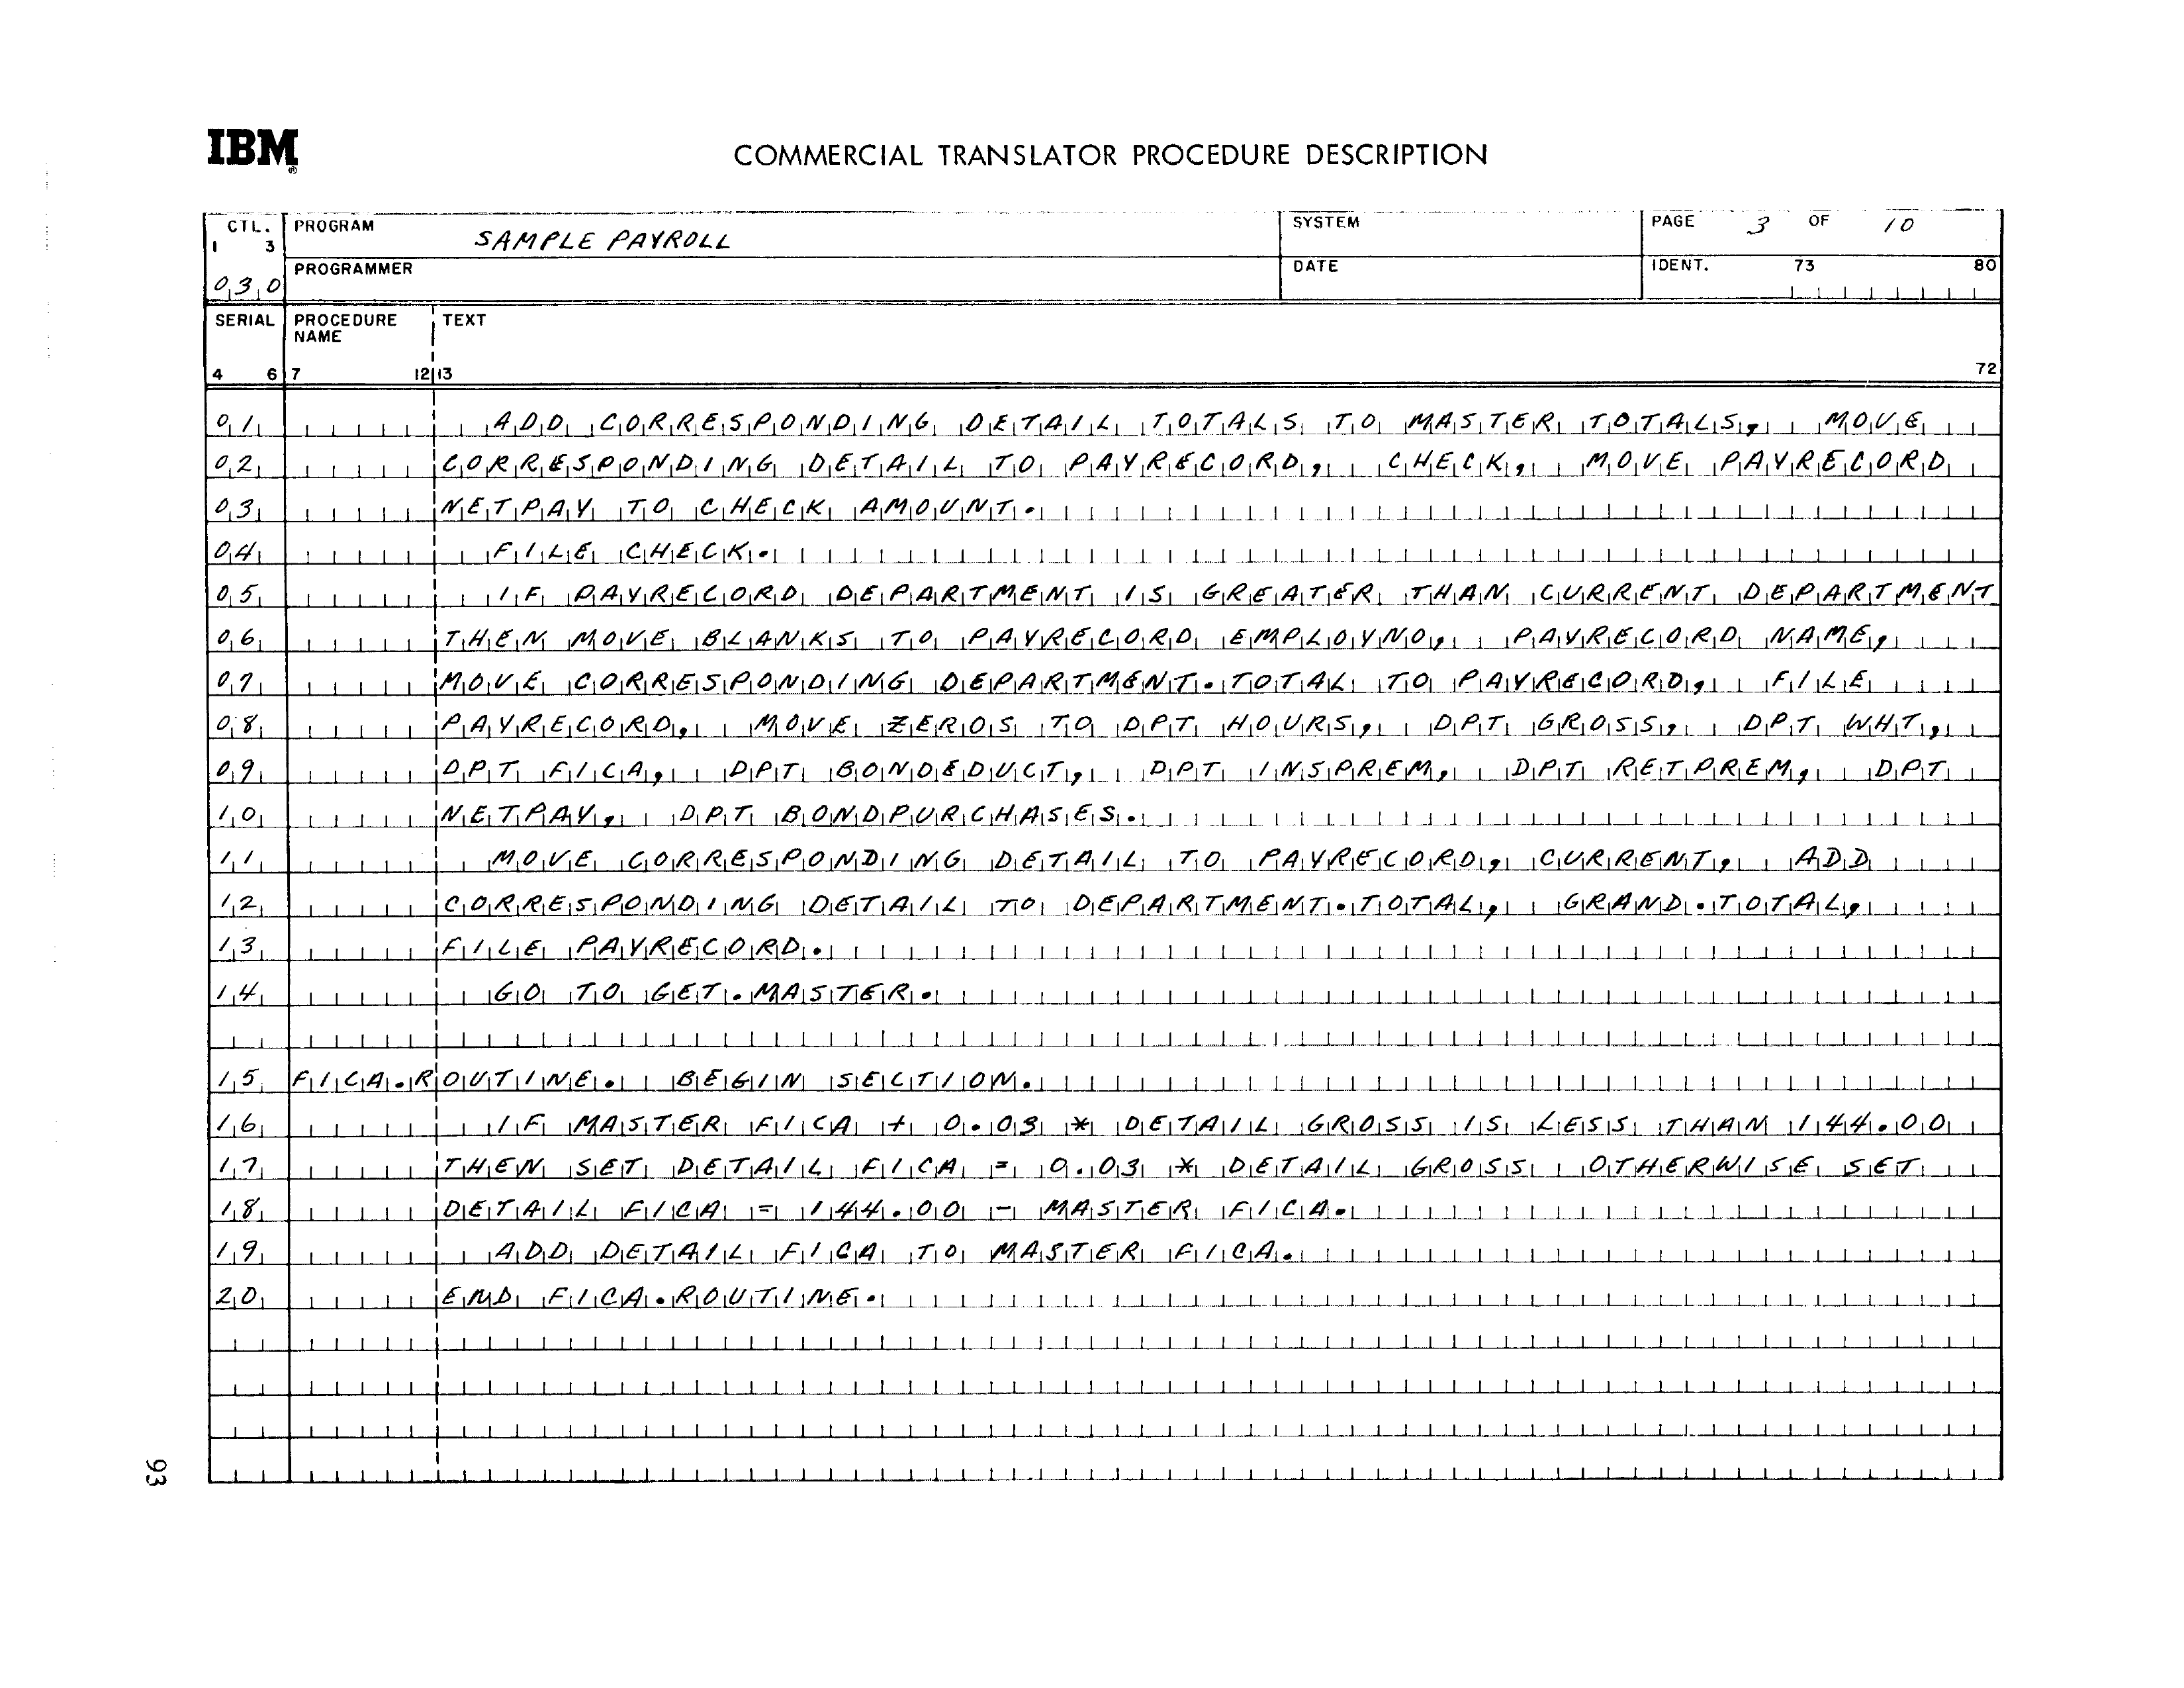 IBM®
COMMERCIAL TRANSLATOR PROCEDURE DESCRIPTION
CTL. PROGRAM SAMPLE PAYROLL SYSTEM PAGE 3 OF 10
1 3
030 PROGRAMMER DATE IDENT. 73 80
SERIAL PROCEDURE NAME TEXT
4 6 7 12 13 72
01 ADD CORRESPONDING DETAIL TOTALS TO MASTER TOTALS, MOVE
02 CORRESPONDING DETAIL TO PAYRECORD, CHECK, MOVE PAYRECORD
03 NETPAY TO CHECK AMOUNT.
04 FILE CHECK.
05 IF PAYRECORD DEPARTMENT IS GREATER THAN CURRENT DEPARTMENT
06 THEN MOVE BLANKS TO PAYRECORD EMPLOYNO, PAYRECORD NAME,
07 MOVE CORRESPONDING DEPARTMENT.TOTAL TO PAYRECORD, FILE
08 PAYRECORD, MOVE ZEROS TO DPT HOURS, DPT GROSS, DPT WHT,
09 DPT FICA, DPT BONDEDUCT, DPT INSPREM, DPT RETPREM, DPT
10 NETPAY, DPT BONDPURCHASES.
11 MOVE CORRESPONDING DETAIL TO PAYRECORD, CURRENT, ADD
12 CORRESPONDING DETAIL TO DEPARTMENT.TOTAL, GRAND.TOTAL,
13 FILE PAYRECORD.
14 GO TO GET.MASTER.
15 FICA.ROUTINE. BEGIN SECTION.
16 IF MASTER FICA + 0.03 * DETAIL GROSS IS LESS THAN 144.00
17 THEN SET DETAIL FICA = 0.03 * DETAIL GROSS OTHERWISE SET
18 DETAIL FICA = 144.00 - MASTER FICA.
19 ADD DETAIL FICA TO MASTER FICA.
20 END FICA.ROUTINE.
93